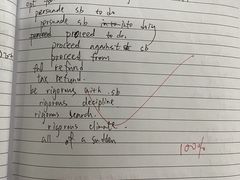 persuade sb to do
persuade sb into
proceed to do.
proceed against sb
proceed from
refund
tax refund.
be rigorous with sb
rigorous discipline
rigorous search.
rigorous climate.
all of a sudden
100%